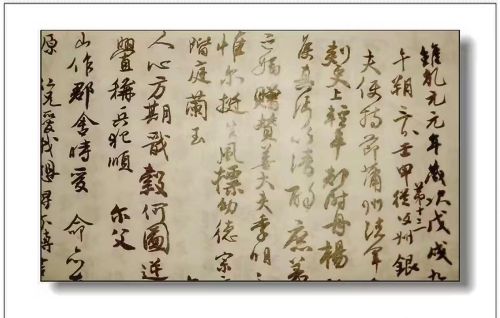 維乾元元年歲次戊戌九
午朔三日壬申第十三從父銀
夫使持節蒲州諸軍
刺史上輕車都尉丹楊
侯真卿以清酌庶羞
亡姪贈贊善大夫季明
惟爾挺生夙標幼德宗
階庭蘭玉
人心方期戩穀何圖逆
釁稱兵犯順 爾父
山作郡余時受 命亦
原仁兄愛我俾爾傳言